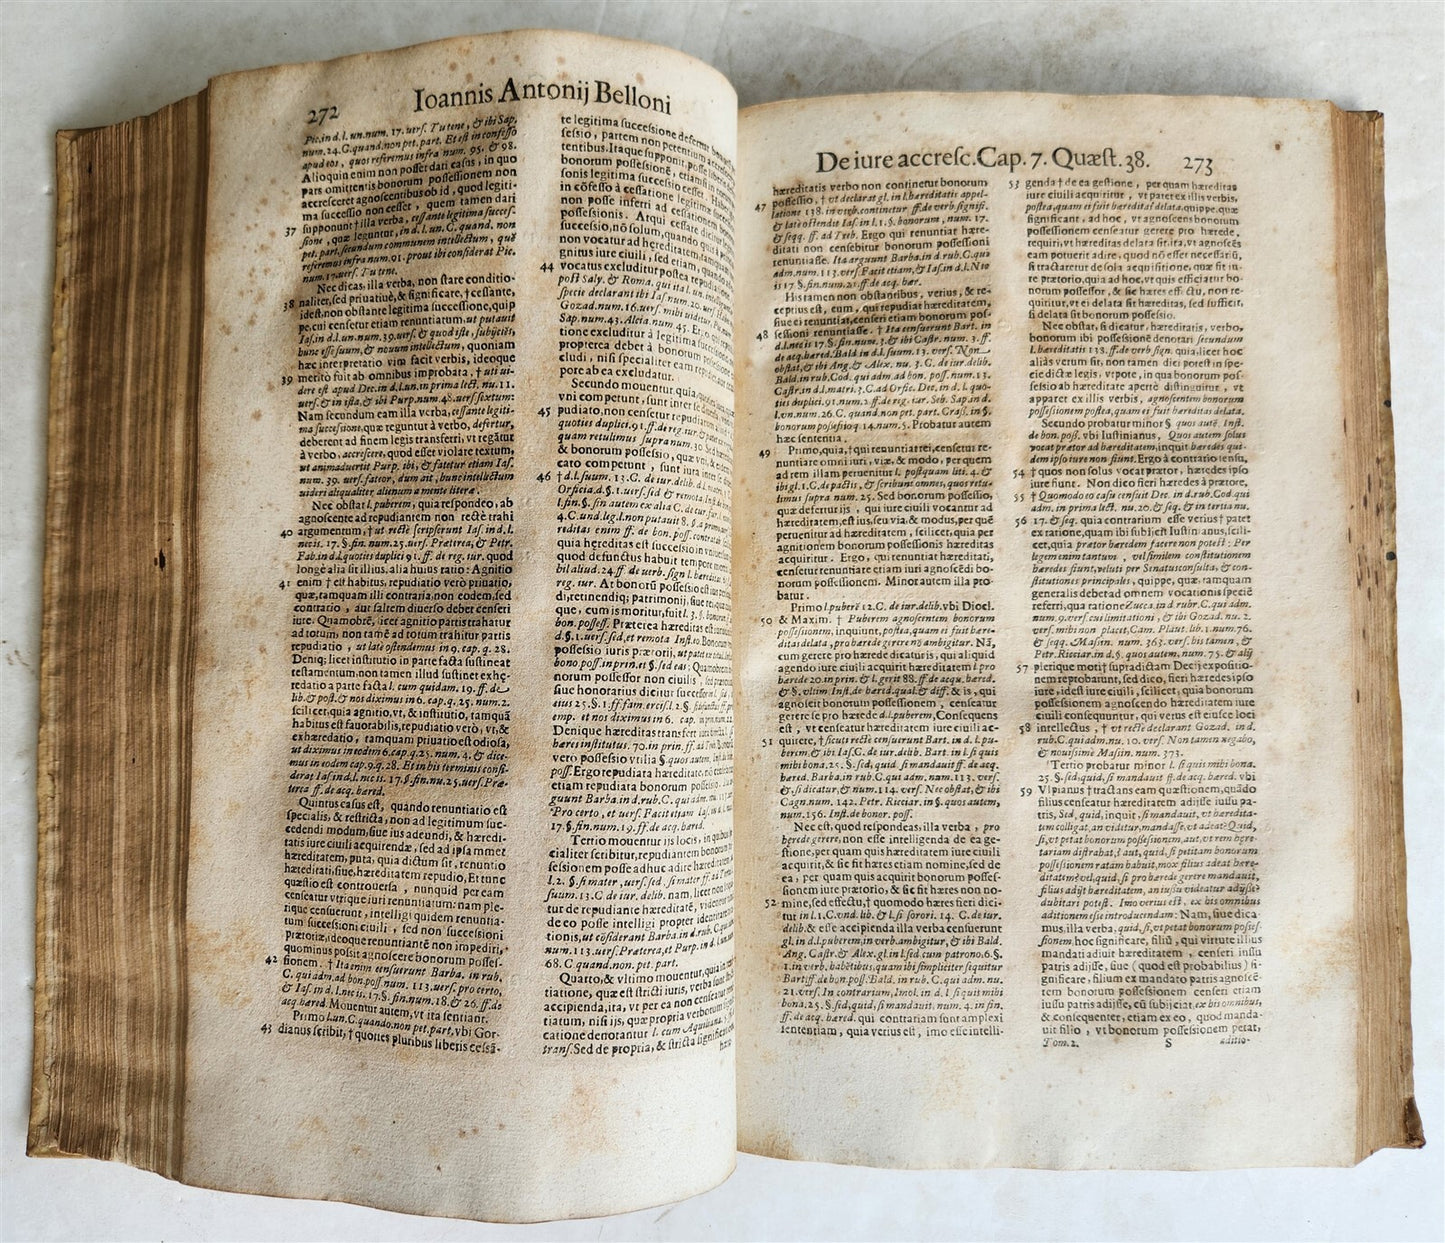 272
Ioannis Antonij Belloni
Pic. in d. l. un. num. 17. uers. Tu tene, & ibi Sap.
num. 24. C. quand. non pet. part. Et est in confesso
apud eos, quos referemus infra num. 95. & 98.
Alioquin enim non posset dari casus, in quo
pars omittentis bonorum possessionem non
accresceret agnoscentibus ob id, quod legiti-
ma successio non cesset, quem tamen dari
37 supponunt † illa verba, cessante legitima succes-
sione, quæ leguntur, in d. l. un. C. quand. non
pet. part. secundum communem intellectum, quē
referemus infra num. 91. prout ibi considerat Pic.
num. 17. uers. Tu tene.
Nec dicas, illa verba, non stare conditio-
38 naliter, sed priuatiuè, & significare, † cessante,
idest, non obstante legitima successione, quip
pe, cui censetur etiam renuntiatum. ut putauit
Ias. in d. l. un. num. 39. uers. & quod iste, subijciēs,
hunc esse suum, & nouum intellectum, quoniam
hæc interpretatio vim facit verbis, ideoque
39 meritò fuit ab omnibus improbata, † uti ui-
dere est apud Dec. in d. l. un. in prima lect. nu. 11.
uers. & in ista, & ibi Purp. num. 48. uers. sextum:
Nam secundum eam illa verba, cessante legiti-
ma successione, quæ reguntur à verbo, defertur,
deberent ad finem legis transferri, vt regātur
à verbo, accrescere, quod esset violare textum,
ut animaduertit Purp. ibi, & fatetur etiam Ias.
num. 39. uers. fateor, dum ait, hunc intellectum
uideri aliqualiter alienum a mente literæ.
Nec obstat l. puberem, quia respondeo, ab
agnoscente ad repudiantem non rectè trahi
40 argumentum, † ut rectè scripserunt Ias. in d. l.
nec is. 17. §. fin. num. 25. uers. Præterea, & Petr.
Fab. in d. l. quoties duplici 91. ff. de reg. iur. quod
longè alia sit illius, alia huius ratio: Agnitio
41 enim † est habitus, repudiatio verò priuatio,
quæ, tamquam illi contraria, non eodem, sed
contrario, aut saltem diuerso debet censeri
iure. Quamobrē, licet agnitio partis trahatur
ad totum, non tamē ad totum trahitur partis
repudiatio, ut late ostendemus in 9. cap. q. 28.
Deniq; licet institutio in parte facta sustineat
testamentum, non tamen illud sustinet exhę-
redatio a parte facta l. cum quidam. 19. ff. de
lib. & post. & nos diximus in 6. cap. q. 25. num. 2.
scilicet, quia agnitio, vt, & institutio, tamquā
habitus est fauorabilis, repudiatio verò, vt, &
exhæredatio, tamquam priuatio est odiosa,
ut diximus in eodem 6. cap. q. 25. num. 4. & dice-
mus in eodem cap. 9. q. 28. Et in his terminis consi-
derat Ias. in d. l. nec is. 17. §. fin. nu. 25. uers. Præ-
terea ff. de acq. hæred.
Quintus casus est, quando renuntiatio est
specialis, & restricta, non ad legitimum suc-
cedendi modum, siue ius adeundi, & hæredi-
tatis iure ciuili acquirendæ, sed ad ipsammet
hæreditatem, puta, quia dictum sit, renuntio
hæreditati, siue, hæreditatem repudio, Et tunc
quæstio est controuersa, nunquid per eam
censeatur vtrique iuri renuntiatum: nam ple-
rique censuerunt, intelligi quidem renuntia-
tum successioni ciuili, sed non successioni
prætoriæ, ideoque renuntiantē non impediri,
quominus possit agnoscere bonorum posses-
42 sionem. † Ita enim censuerunt Barba. in rub.
C. qui adm. ad bon. poss. num. 113. uers. pro certo,
& Ias. in d. l. nec is. 17. §. fin. num. 18. & 26. ff. de
acq. hæred. Mouentur autem, vt ita sentiant.
Primo l. un. C. quando. non pet. part. vbi Gor-
43 dianus scribit, † quoties pluribus liberis cessā-
te legitima successione defertur
sessio, partem non petentium
tentibus. Itaque supponit, posse
bonorum possessionē, etiamsi
sonis legitima successio cesset.
in cōfesso à cessatione legitimæ
non posse inferri ad cessationem
possessionis. Atqui cessare dicitur
successio, nō solum, quando quis
non vocatur ad hęreditatem, tamquam
gnitus iure ciuili, sed etiam, quando
44 vocatus excluditur postea
post Saly. & Roma. qui ita l. un.
specie declarant ibi Ias. num. 20.
Gozad. num. 16. uers. mihi uidetur,
Sap. num. 43. Alcia. num. 45. Ergo
tione excluditur à legitima
propterea debet à bonorum
cludi, nisi specialiter eam
pore ab ea excludatur.
Secundo mouentur, quia,
vni competunt, sunt inter se
45 pudiato, non censetur repudiatum
quoties duplici. 91. ff. de reg. iur.
quam retulimus supra num. 30.
& bonorum possessio, quæ
cato competunt, sunt iura inter se
46 † d. l. suum. 13. C. de iur. delib.
Orficia. d. §. 1. uers. sed & remota,
l. fin. §. fin autem ex alia C. de iur.
4. C. und. leg. l. non putauit 8. §.
reditas enim ff. de bon. poss. contra
quia hęreditas est successio in
quod defunctus habuit tempore mortis
bil aliud. 24. ff. de uerb. sign l. hæreditas
reg. iur. At bonorū possessio est
di, retinendiq; patrimonij, siue
que, cum is moritur, fuit l. 3. §.
bon. possess. Præterea hæreditas est
d. §. 1. uers. sed, et remota Inst.
possessio iuris prætorij, ut patet
bono poss. in prin. et §. sed eas;
norum possessor non ciuilis, sed
siue honorarius dicitur successor
eius 25. §. 1. ff. fam. ercis. l. 2. §.
emp. et nos diximus in 6. cap.
Denique hæreditas transfert
hæres institutus. 70. in prin. ff. ad
vero possessio vtilia §. quos autem.
poss. Ergo repudiata hæreditate, nō
etiam repudiata bonorum possessio.
guunt Barba. in d. rub. C. qui adm.
Pro certo, et uers. Facit etiam
17. §. fin. num. 19. ff. de acq. hæred.
Tertio mouentur ijs locis, in
cialiter scribitur, repudiantem bonorum
sessionem posse adhuc adire
l. 2. §. si mater, uers. sed, si mater
suum. 13. C de iur. delib. nam, licet
tur de repudiante hæreditatē,
de eo posse intelligi propter
tionis, ut cōsiderant Barba. in d. rub.
num. 113. uers. Præterea, et Purp. in d. l.
68. C quand. non. pet. part.
Quarto, & vltimo mouentur, quia in
tiatione, quæ est stricti iuris, verba
accipienda, ita, vt per ea non censeatur
tiatum, nisi ijs, quæ propria verborum
catione denotantur l. cum Aquiliana.
trans. Sed de propria, & stricta significatione
De iure accresc. Cap. 7. Quæst. 38. 273
hæreditatis verbo non continetur bonorum
47 possessio, † vt declarat gl. in l. hæreditatis appel-
latione 138. in verb. continetur ff. de verb. signifi.
& late ostendit Ias. in l. 1. §. bonorum, num. 17.
& seqq. ff. ad Treb. Ergo qui renuntiat hære-
ditati non censebitur bonorum possessioni
renuntiasse. Ita arguunt Barba. in d. rub. C. qui
adm. num. 113. vers. Facit etiam, & Ias. in d. l. Nec
is 17 §. fin. num. 21. ff. de acq. hær.
His tamen non obstantibus, verius, & re-
ceptius est, eum, qui repudiat hæreditatem,
siue ei renuntiat, censeri etiam bonorum pos-
48 sessioni renuntiasse. † Ita censuerunt Bart. in
d. l. nec is 17. §. fin. num. 3. & ibi Castr. num. 3. ff.
de acq. hæred. Bald in d. l. suum. 13. vers. Non
obstat, & ibi Ang. & Alex. nu. 3. C. de iur. delib.
Bald. in rub. Cod. qui adm. ad bon. poss. num. 13.
Castr. in d. l. matri. 3. C. ad Orfic. Dec. in d. l. quo-
ties duplici. 91. num. 2. ff. de reg. iur. Seb. Sap. in d.
l. vn. num. 26. C. quand. non pet. part. Grass. in §.
bonorum possessio q. 14. num. 5. Probatur autem
hæc sententia.
49 Primo, quia, † qui renuntiat rei, censetur re-
nuntiare omni iuri, viæ, & modo, per quem
ad rem illam peruenitur l. postquam liti. 4. &
ibi gl. 1. C. de pactis, & scribunt omnes, quos retu-
limus supra num. 25. Sed bonorum possessio,
quæ defertur ijs, qui iure ciuili vocantur ad
hæreditatem, est ius, seu via, & modus, per quē
peruenitur ad hæreditatem, scilicet, quia per
agnitionem bonorum possessionis hæreditas
acquiritur. Ergo, qui renuntiat hæreditati,
censetur renuntiare etiam iuri agnoscēdi bo-
norum possessionem. Minor autem illa pro-
batur.
Primo l. puberē 12. C. de iur. delib. vbi Diocl.
50 & Maxim. † Puberem agnoscentem bonorum
possessionem, inquiunt, postea, quam ei fuit hære-
ditas delata, pro hærede gerere nō ambigitur. Nā,
cum gerere pro hærede dicatur is, qui aliquid
agendo iure ciuili acquirit hæreditatem l. pro
hærede 20. in prin. & l. gerit 88. ff. de acqu. hæred.
& §. vltim Inst. de hæred. qual. & diff. & is, qui
agnoscit bonorum possessionem, censetur
gerere se pro hærede d. l. puberem, Consequens
est, vt censeatur hæreditatem iure ciuili ac-
51 quirere, † sicut rectè censuerunt Bart. in d. l. pu-
berem, & ibi Ias. C. de iur. delib. Bart. in l. si quis
mihi bona. 25. §. sed, quid, si mandauit ff. de acq.
hæred. Barba. in rub. C. qui adm. num. 113. vers.
&, si dicatur, & num. 114. vers. Nec obstat, & ibi
Cagn. num. 142. Petr. Ricciar. in §. quos autem,
num. 156. Inst. de bonor. poss.
Nec est, quod respondeas, illa verba, pro
hærede gerere, non esse intelligenda de ea ge-
stione, per quam quis hæreditatem iure ciuili
acquirit, & sic fit hæres etiam nomine, sed de
ea, per quam quis acquirit bonorum posses-
sionem iure prætorio, & sic fit hæres non no-
52 mine, sed effectu, † quomodo hæres fieri dici-
tur in l. 1. C. vnd. lib. & l. si sorori. 14. C. de iur.
delib. & esse accipienda illa verba censuerunt
gl. in d. l. puberem, in verb. ambigitur, & ibi Bald.
Ang. Castr. & Alex. gl. in l. sed cum patrono. 6. §.
1. in verb. habētibus, quam ibi simpliciter sequitur
Bart. ff. de bon. poss. Bald. in rub. C. qui adm. nu.
21. vers. In contrarium, Imol. in d. l si quis mihi
bona. 25. §. sed, quid, si mandauit. num. 4. in fin.
ff. de acq. hæred. qui contrariam sunt amplexi
sententiam, quia verius est, imo esse intelli-
53 genda † de ea gestione, per quam hæreditas
iure ciuili acquiritur, vt patet ex illis verbis,
postea, quam ei fuit hæreditas delata, quippe, quæ
significant, ad hoc, vt agnoscens bonorum
possessionem censeatur gerere pro hærede,
requiri, vt hæreditas delata sit, ita, vt agnoscēs
eam potuerit adire, quod nō esset necessariū,
si tractaretur de sola acquisitione, quæ fit iu-
re prætorio, quia ad hoc, vt quis efficiatur bo-
norum possessor, & sic hæres effectu, non re-
quiritur, vt ei delata sit hæreditas, sed sufficit,
si delata sit bonorum possessio.
Nec obstat, si dicatur, hæreditatis, verbo,
bonorum ibi possessionē denotari secundum
l. hæreditatis 138. ff. de verb sign. quia, licet hoc
alias verum sit, non tamen dici potest in spe-
cie dictæ legis, vtpote, in qua bonorum pos-
sessio ab hæreditate apertè distinguitur, vt
apparet ex illis verbis, agnoscentem bonorum
possessionem postea, quam ei fuit hæreditas delata.
Secundo probatur minor § quos autē. Inst.
de bon. poss. vbi Iustinianus, Quos autem solus
vocat prætor ad hæreditatem, inquit hæredes qui-
dem ipso iure non fiunt. Ergo à contrario sensu,
54 † quos non solus vocat prætor, hæredes ipso
iure fiunt. Non dico fieri hæredes à prætore,
55 † Quomodo eo casu censuit Dec. in d. rub. Cod. qui
adm. in prima lect. nu. 20. & seq. & in tertia nu.
56 17. & seq. quia contrarium esse verius † patet
ex ratione, quam ibi subijcit Iustinianus, scili-
cet, quia prætor hæredem facere non potest: Per
legem enim tantum, vel similem constitutionem
hæredes fiunt, veluti per Senatusconsulta, & con-
stitutiones principales, quippe, quæ, tamquam
generalis debet ad omnem vocationis speciē
referri, qua ratione Zucca. in d. rubr. C. qui adm.
num. 9. vers. cui limitationi, & ibi Gozad. nu. 2.
vers. mihi non placet, Cam. Plaut. lib. 1. num. 76.
& seqq. Massin. num. 363. vers. his tamen, &
Petr. Ricciar. in d. §. quos autem, num. 75. & alij
57 plerique moti † supradictam Decij expositio-
nem reprobarunt, sed dico, fieri hæredes ipso
iure, idest iure ciuili, scilicet, quia bonorum
possessionem agnoscendo hæreditatem iure
ciuili consequuntur, qui verus est eiusce loci
58 intellectus, † vt rectè declarant Gozad. in d.
rub. C. qui adm. nu. 10. vers. Non tamen negabo,
& nouissime Massin. num. 373.
Tertio probatur minor l. si quis mihi bona.
25. §. sed, quid, si mandauit ff. de acq. hæred. vbi
59 Vlpianus † tractans eam quæstionem, quādo
filius censeatur hæreditatem adijsse iussu pa-
tris, Sed, quid, inquit, si mandauit, vt hæredita-
tem colligat, an videtur, mandasse, vt adeat? Quid,
si, vt petat bonorum possessionem, aut, vt rem hære-
tariam distrahat, aut, quid, si petitam bonorum
possessionem ratam habuit, mox filius adeat hære-
ditatem? vel, quid, si pro hærede gerere mandauit,
filius adijt hæreditatem, an iussu videatur adijsse
dubitari potest. Imo verius est, ex his omnibus
aditionem esse introducendam: Nam, siue dica-
mus, illa verba, quid, si, vt petat bonorum posses-
sionem, hoc significare, filiū, qui virtute illius
mandati adiuit hæreditatem, censeri iussu
patris adijsse, siue (quod est probabilius) si-
gnificare, filium ex mandato patris agnoscē-
tem bonorum possessionem censeri etiam
iussu patris adijsse, cū subijciat, ex his omnibus,
& consequenter, etiam ex eo, quod manda-
uit filio, vt bonorum possessionem petat,
Tom. 2. S aditio-